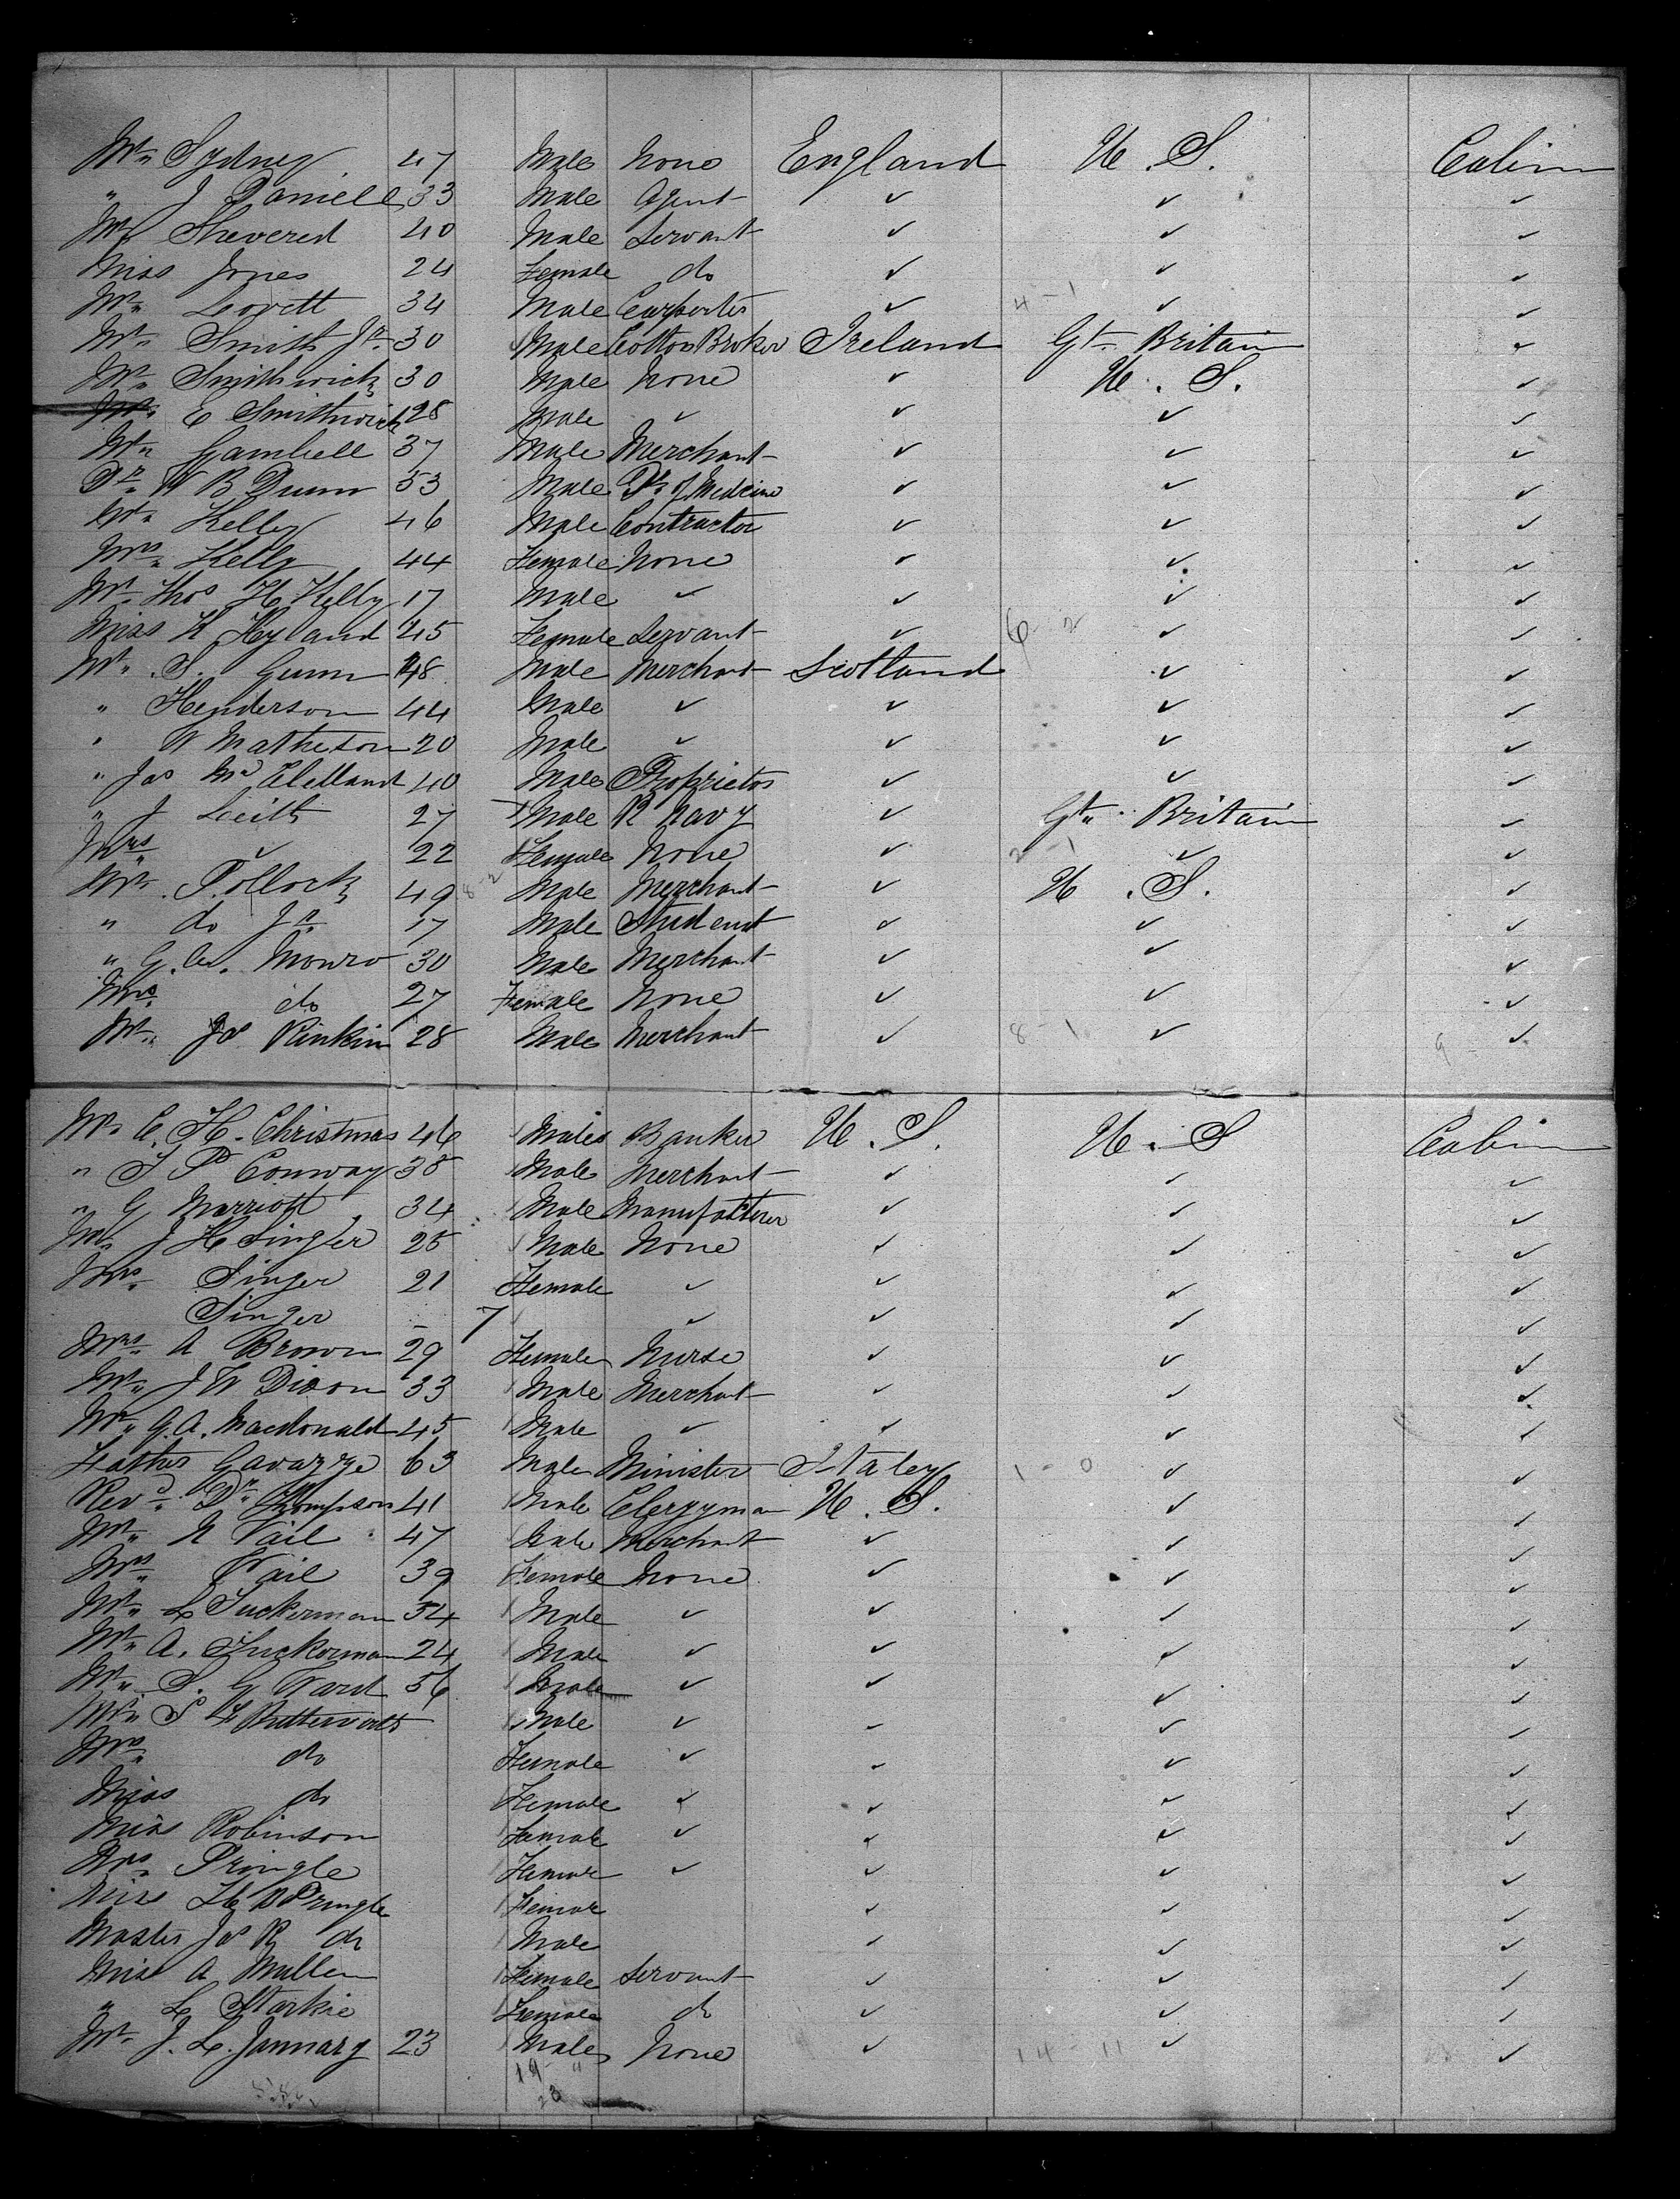 Mr. Sydney 47 Male None England U. S. Cabin
" J Daniell 33 Male Agent ✓ ✓ ✓
Mr. Shevered 40 Male Servant ✓ ✓ ✓
Miss Jones 24 Female do ✓ ✓ ✓
Mr. Lovett 34 Male Carpenter ✓ 4-1 ✓ ✓
Mr. Smith Jr. 30 Male Cotton Broker Ireland Gt. Britain ✓
Mr. Smithwick 30 Male None ✓ U. S. ✓
Mr. E Smithwick 28 Male ✓ ✓ ✓ ✓
Mr. Gambell 37 Male Merchant ✓ ✓ ✓
Dr. W B Dunn 53 Male Dr. of Medicine ✓ ✓ ✓
Mr. Kelly 46 Male Contractor ✓ ✓ ✓
Mrs. Kelly 44 Female None ✓ ✓ ✓
Mr. Thos H Kelly 17 Male ✓ ✓ ✓ ✓
Miss K Hyland 45 Female Servant ✓ 6 2 ✓ ✓
Mr. S. Gunn 48 Male Merchant Scotland ✓ ✓
" Henderson 44 Male ✓ ✓ ✓ ✓
" W Matheson 20 Male ✓ ✓ ✓ ✓
" Jas Mc Clelland 40 Male Proprietor ✓ ✓ ✓
" J Leith 27 Male R Navy ✓ Gt. Britain ✓
Mrs. ✓ 22 Female None ✓ 2-1 ✓ ✓
Mr. Pollock 49 8-2 Male Merchant ✓ U. S. ✓
" do Jr. 17 Male Student ✓ ✓ ✓
" G. A. Monro 30 Male Merchant ✓ ✓ ✓
Mrs. do 27 Female None ✓ ✓ ✓
Mr. Jas Rankin 28 Male Merchant ✓ 8-1 ✓ 9 - ✓
Mr. C. H. Christmas 46 Male Banker U. S. U. S Cabin
" T P Conway 38 Male Merchant ✓ ✓ ✓
" G Marriott 34 Male Manufacturer ✓ ✓ ✓
Mr. J H Singer 25 Male None ✓ ✓ ✓
Mrs. Singer 21 Female ✓ ✓ ✓ ✓
Singer 7 ✓ ✓ ✓ ✓
Mrs. A Brown 29 Female Nurse ✓ ✓ ✓
Mr. J W Dixon 33 Male Merchant ✓ ✓ ✓
Mr. G. A. Macdonald 45 Male ✓ ✓ ✓ ✓
Father Gavazze 63 Male Minister Italey 1-0 ✓ ✓
Revd. Dr. Thompson 41 Male Clergyman U. S. ✓ ✓
Mr. N Vail 47 Male Merchant ✓ ✓ ✓
Mrs. Vail 39 Female None ✓ ✓ ✓
Mr. L Tuckerman 54 Male ✓ ✓ ✓ ✓
Mr. A. Tuckerman 24 Male ✓ ✓ ✓ ✓
Mr. S. G Ward 56 Male ✓ ✓ ✓ ✓
Mr. S F Butterworth Male ✓ ✓ ✓ ✓
Mrs. do Female ✓ ✓ ✓ ✓
Miss do Female ✓ ✓ ✓ ✓
Miss Robinson Female ✓ ✓ ✓ ✓
Mrs. Pringle Female ✓ ✓ ✓ ✓
Miss Pringle Female ✓ ✓ ✓
Master Jas R do Male ✓ ✓ ✓
Miss A Mullen Female Servant ✓ ✓ ✓
" L Starkie Female do ✓ ✓ ✓
Mr. J. L. January 23 Male None ✓ 14-11 ✓ ✓
19 "
23